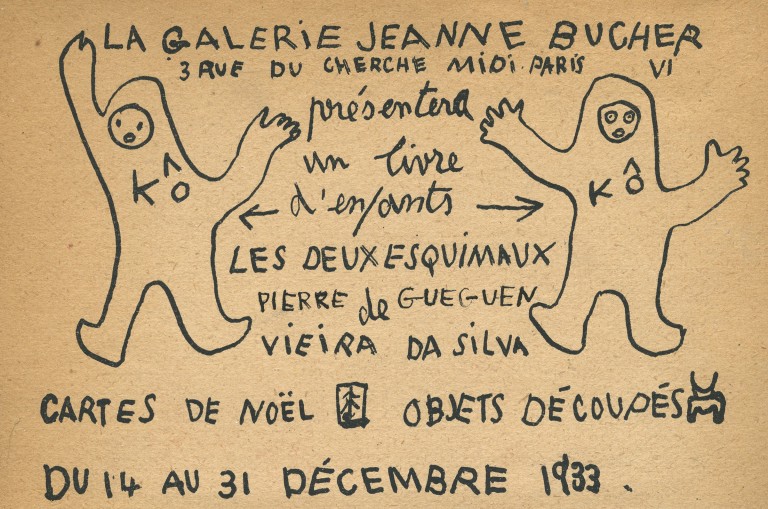 LA GALERIE JEANNE BUCHER
3 RUE DU CHERCHE MIDI. PARIS VI
présentera
un livre
d'enfants
KÔ
KÔ
LES DEUX ESQUIMAUX
PIERRE de GUEGUEN
VIEIRA DA SILVA
CARTES DE NOËL OBJETS DÉCOUPÉS
DU 14 AU 31 DÉCEMBRE 1933.